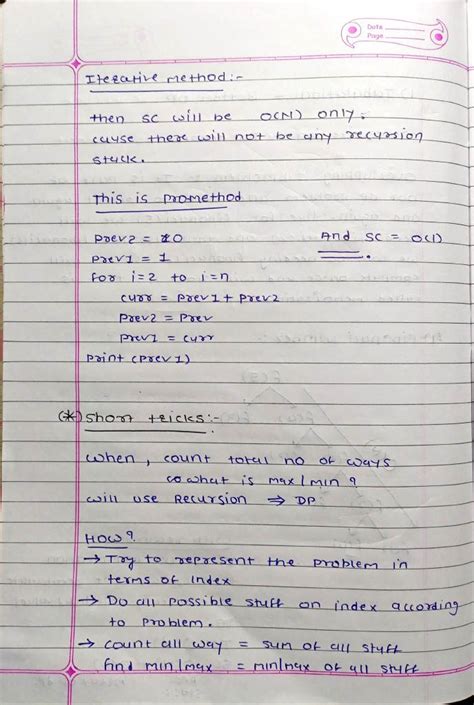 Date
Page
Iterative method:-
then SC will be O(N) only.
cause there will not be any recursion
stack.
This is promethod
prev2 = 0 And SC = O(1)
prev1 = 1
for i=2 to i=n
curr = prev1 + prev2
prev2 = prev
prev1 = curr
print (prev1)
(*) short tricks:-
when, count total no of ways
what is max/min ?
will use Recursion ⇒ DP
HOW?
→ Try to represent the problem in
terms of index
→ Do all possible stuff on index according
to problem.
→ count all way = sum of all stuff
find min/max = min/max of all stuff